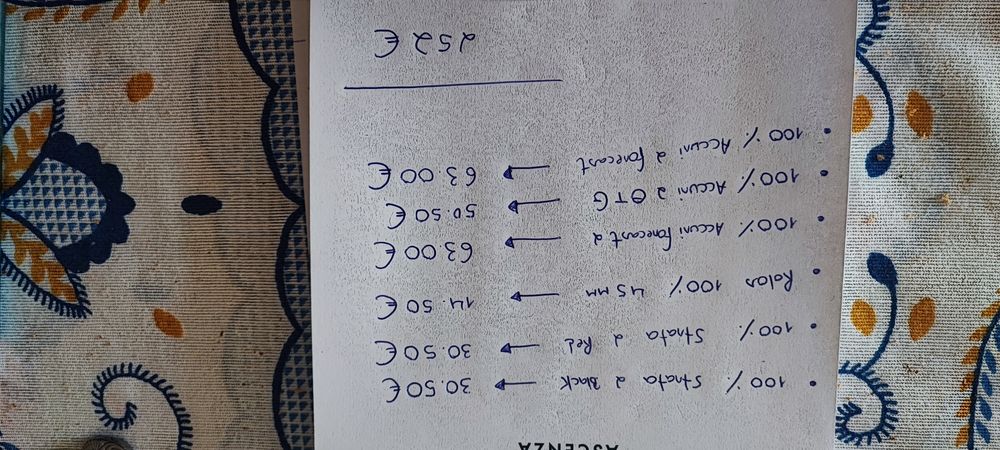 ASCENZA
• 100% Strata 2 Black → 30.50€
• 100% Strata 2 Red → 30.50€
• Rolos 100% 45mm → 14.50€
• 100% Accuri forecast 2 → 63.00€
• 100% Accuri 2 OTG → 50.50€
• 100% Accuri 2 forecast → 63.00€
252€